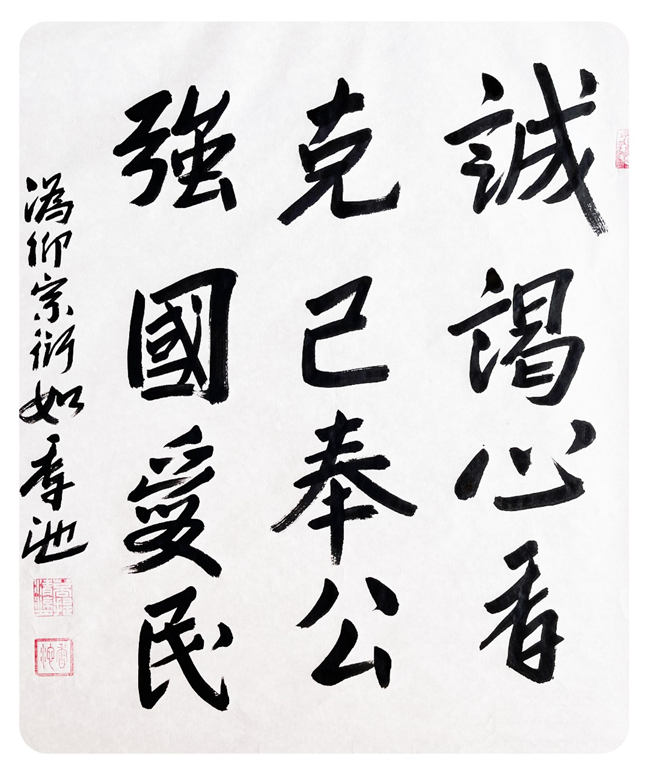 誠謁心香
克己奉公
強國愛民
溈仰宗衍如香池